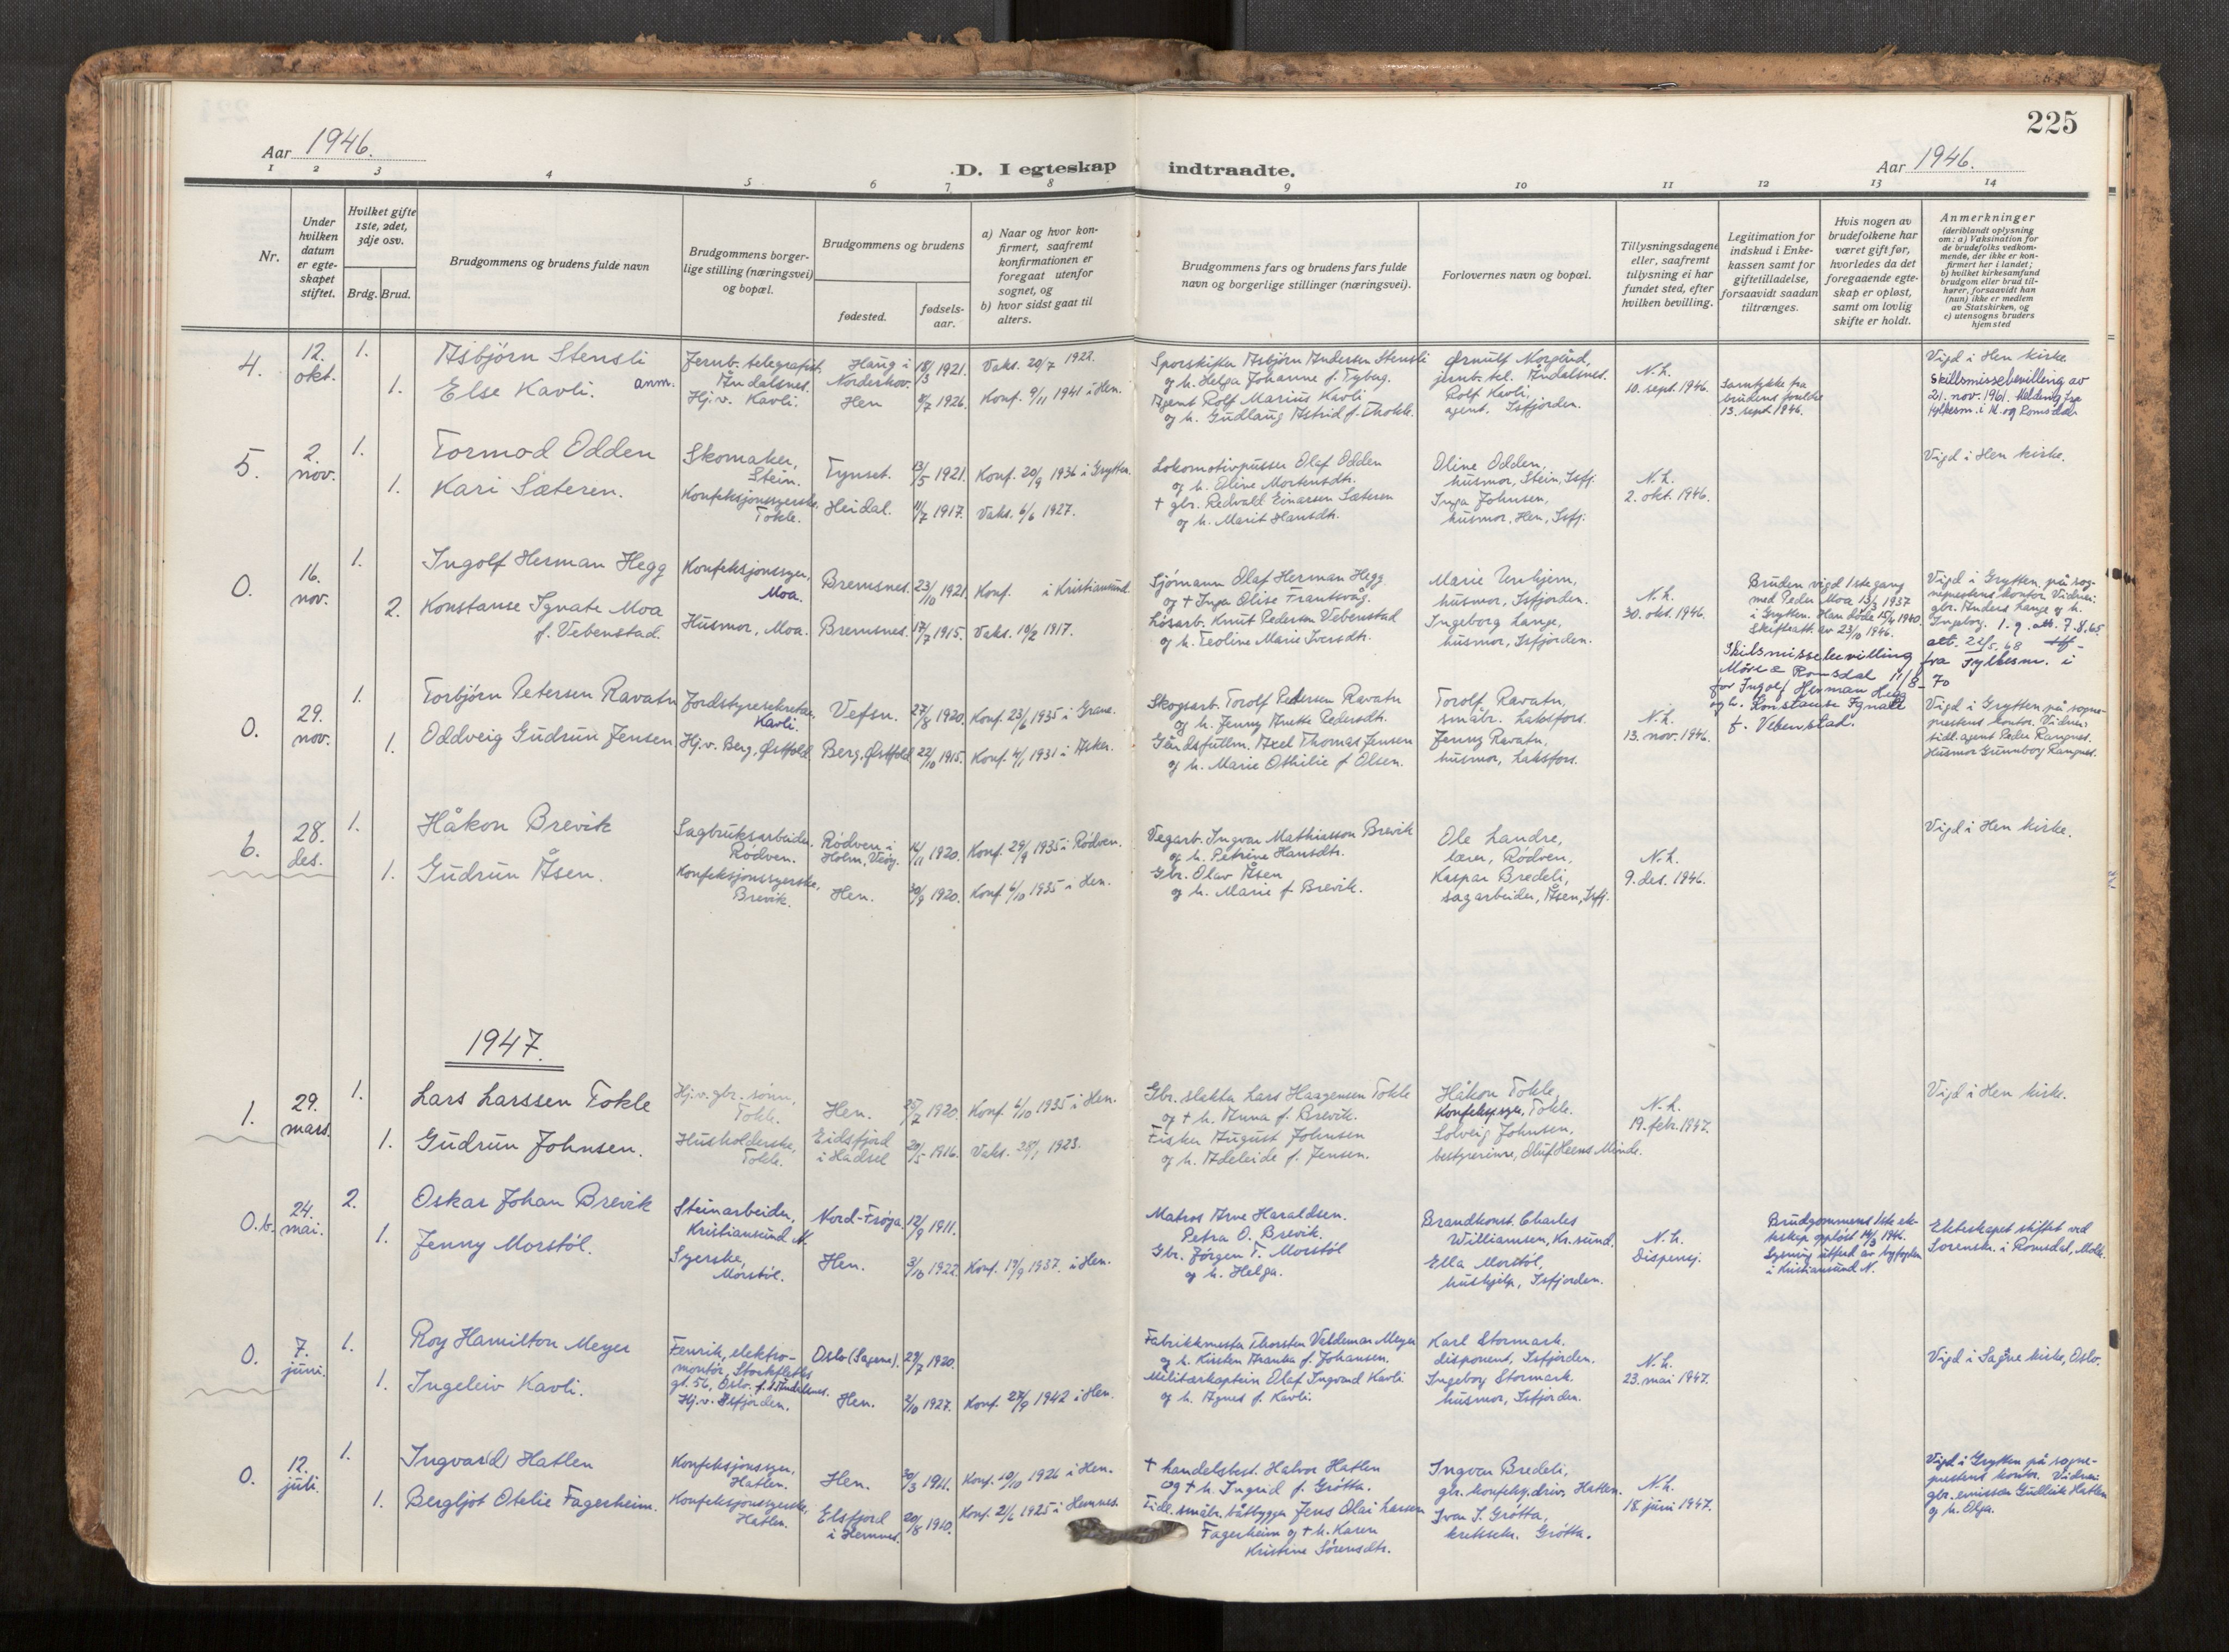 225
Aar 1946.
D. I egteskap indtraadte.
Aar 1946.
1 2 3 4 5 6 7 8 9 10 11 12 13 14
Nr.
Under hvilken datum er egteskapet stiftet.
Hvilket gifte 1ste, 2det, 3dje osv.
Brdg. Brud.
Brudgommens og brudens fulde navn
Brudgommens borgerlige stilling (næringsvei) og bopæl.
Brudgommens og brudens
fødested.
fødselsaar.
a) Naar og hvor konfirmert, saafremt konfirmationen er foregaat utenfor sognet, og
b) hvor sidst gaat til alters.
Brudgommens fars og brudens fars fulde navn og borgerlige stillinger (næringsvei).
Forlovernes navn og bopæl.
Tillysningsdagene eller, saafremt tillysning ei har fundet sted, efter hvilken bevilling.
Legitimation for indskud i Enkekassen samt for giftetilladelse, forsaavidt saadan tiltrænges.
Hvis nogen av brudefolkene har været gift før, hvorledes da det foregaaende egteskap er opløst, samt om lovlig skifte er holdt.
Anmerkninger
(deriblandt oplysning om: a) Vaksination for de brudefolks vedkommende, der ikke er konfirmert her i landet;
b) hvilket kirkesamfund brudgom eller brud tilhører, forsaavidt han (hun) ikke er medlem av Statskirken, og
c) utensogns bruders hjemsted
4. 12. okt. 1. Asbjørn Stensli
Jernb. telegrafist, Åndalsnes.
Haug i Norderhov. 18/3 1921. Vaks. 20/7 1922.
1. Else Kavli. anm.
Hj.v. Kavli. Hen 8/7 1926. Konf. 9/11 1941 i Hen.
Sporskifter Asbjørn Andersen Stensli
og h. Helga Johanne f. Nyberg.
Agent Rolf Marius Kavli
og h. Gudlaug Astrid f. Thokle.
Ørnulf Norgård,
jernb. tel. Åndalsnes.
Rolf Kavli,
agent, Isfjorden.
N.h.
10. sept. 1946.
Samtykke fra
brudens foreldre
13. sept 1946.
Vigd i Hen kirke.
Skillsmissebevilling av
21. nov. 1961. Melding fra
fylkesm. i M. og Romsdal
5. 2. nov. 1. Tormod Odden
Skomaker, Stein.
Tynset. 13/5 1921. Konf. 20/9 1936 i Grytten.
1. Kari Sæteren.
Konfeksjonssyerske, Tokle.
Heidal. 11/7 1917. Vaks. 6/6 1927.
Lokomotivpusser Olaf Odden
og h. Oline Mortensdtr.
† gbr. Redvald Einarsen Sæteren
og h. Marit Hansdtr.
Oline Odden,
husmor, Stein, Isfj.
Inga Johnsen,
husmor, Hen, Isfj.
N.h.
2. okt. 1946.
Vigd i Hen kirke.
0. 16. nov. 1. Ingolf Herman Hegg
Konfeksjonssyer, Moa.
Bremsnes. 23/10 1921. Konf. i Kristiansund.
2. Konstanse Ignate Moa
f. Vebenstad.
Husmor, Moa. Bremsnes. 17/7 1915. Vaks. 19/2 1917.
Sjømann Olaf Herman Hegg
og † Inga Olise Frantsvåg.
Løsarb. Knut Pedersen Vebenstad
og h. Teoline Marie Iversdtr.
Marie Unhjem,
husmor, Isfjorden.
Ingeborg Lange,
husmor, Isfjorden.
N.h.
30. okt. 1946.
Bruden vigd 1ste gang
med Peder Moa 13/3 1937
i Grytten. Han døde 15/4 1940.
Skifteatt. av 23/10 1946.
Vigd i Grytten på sogneprestens kontor. Vidner:
gbr. Anders Lange og h.
Ingeborg. 1. g. att. 7.8.65.
att. 22/5.68
Skilsmissebevilling fra Fylkesm. i
Møre & Romsdal 11/8-70
for Ingolf Herman Hegg
og h. Konstanse Ignate
f. Vebenstad.
0. 29. nov. 1. Torbjørn Petersen Ravatn
Jordstyresekretær, Kavli.
Vefsn. 27/8 1920. Konf. 23/6 1935 i Grane.
1. Oddveig Gudrun Jensen
Hj.v. Berg, Østfold Berg, Østfold 22/10 1915. Konf. 4/1 1931 i Asker.
Skogsarb. Torolf Pedersen Ravatn
og h. Jenny Anette Pedersdtr.
Gårdsfullm. Axel Thomas Jensen
og h. Marie Othilie f. Olsen.
Torolf Ravatn,
småbr. Laksfors.
Jenny Ravatn,
husmor, Laksfors.
N.h.
13. nov. 1946.
Vigd i Grytten på sogneprestens kontor. Vidner:
tidl. agent Peder Rangnes.
Husmor Gunnborg Rangnes.
6. 28. des. 1. Håkon Brevik
Sagbruksarbeider, Rødven.
Rødven i Holm, Veøy. 14/11 1920. Konf. 29/9 1935 i Rødven.
1. Gudrun Åsen.
Konfeksjonssyerske, Brevik.
Hen. 30/9 1920. Konf. 6/10 1935 i Hen.
Vegarb. Ingvar Mathiasson Brevik
og h. Petrine Hansdtr.
Gbr. Olav Åsen
og h. Marie f. Brevik.
Ole Landre,
lærer, Rødven,
Kaspar Bredeli,
sagarbeider, Åsen, Isfj.
N.h.
9. des. 1946.
Vigd i Hen kirke.
1947.
1. 29. mars. 1. Lars Larssen Tokle
Hj.v. gbr. sønn, Tokle.
Hen. 25/7 1920. Konf. 6/10 1935 i Hen.
1. Gudrun Johnsen.
Husholderske, Tokle.
Eidsfjord i Hadsel 20/5 1916. Vaks. 28/1 1923.
Gbr. slakter Lars Haagensen Tokle
og † h. Anna f. Brevik.
Fisker August Johnsen
og h. Adeleide f. Jensen.
Håkon Tokle,
Konfeksj.syer, Tokle.
Solveig Johnsen,
bestyrerinne, Oluf Heens Minde.
N.h.
19. febr. 1947.
Vigd i Hen kirke.
0.b. 24. mai. 2. Oskar Johan Brevik
Steinarbeider, Kristiansund N.
Nord-Frøya. 12/9 1911.
1. Jenny Morstøl.
Syerske, Morstøl.
Hen. 3/10 1922. Konf. 19/9 1937. i Hen.
Matros Arve Haraldsen.
Petra O. Brevik.
Gbr. Jørgen T. Morstøl
og h. Helga.
Brandkonst. Charles
Williamsen, Kr.sund.
Ella Morstøl,
hushjelp, Isfjorden.
N.h.
Dispensj.
Brudgommens 1ste ekteskap oppløst 14/3 1946.
Lysning utført av byfogden
i Kristiansund N.
Ekteskapet stiftet ved
Sorenskr. i Romsdal, Molde.
0. 7. juni. 1. Roy Hamilton Meyer
Fenrik, elektromontør, Stockfleths
gt. 56, Oslo. f. t. Åndalsnes.
Oslo (Sagene). 29/7 1920.
1. Ingeleiv Kavli.
Hj.v. Isfjorden. Hen. 2/10 1927. Konf. 27/9 1942 i Hen.
Fabrikkmester Thorsten Valdemar Meyer
og h. Kirsten Franka f. Johansen.
Militærkaptein Olaf Ingvard Kavli
og h. Agnes f. Kavli.
Karl Stormark.
disponent, Isfjorden.
Ingeborg Stormark.
husmor, Isfjorden.
N.h.
23. mai 1947.
Vigd i Sagene kirke, Oslo.
0. 12. juli. 1. Ingvar(d) Hatlen
Konfeksjonssyer, Hatlen.
Hen. 30/3 1911. Konf. 10/10 1926 i Hen.
1. Bergljot Otelie Fagerheim.
Konfeksjonssyerske, Hatlen.
Elsfjord i Hemnes. 20/8 1910. Konf. 21/6 1925 i Hemnes.
† handelsbest. Halvor Hatlen
og † h. Ingrid f. Grøtta.
Tidl. småbr. båtbygger Jens Olai Larsen
Fagerheim og † h. Karen
Kristine Sørensdtr.
Ingvar Bredeli,
gbr. konfeksj.driv., Hatlen.
Ivar S. Grøtta,
kretssekr. Grøtta.
N.h.
18. juni 1947.
Vigd i Grytten på sogneprestens kontor. Vidner:
gbr. emissær Gulleik Hatlen
og h. Olga.